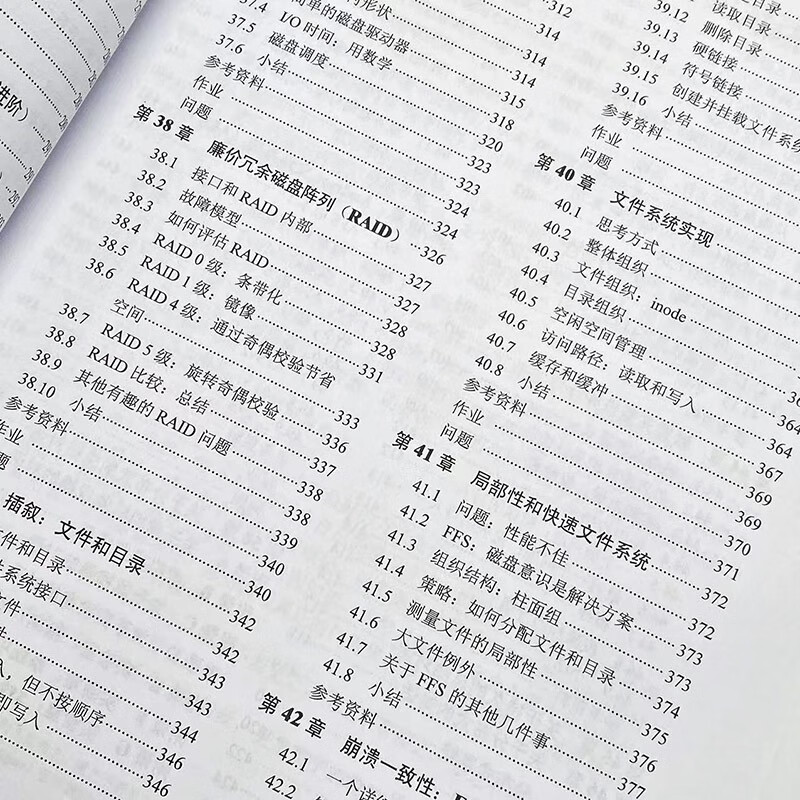 形状 314
简单的磁盘驱动器 315
37.4 I/O 时间：用数学 318
37.5 磁盘调度 320
37.6 小结 323
参考资料 323
作业 324
问题 324
第 38 章 廉价冗余磁盘阵列（RAID） 326
38.1 接口和 RAID 内部 327
38.2 故障模型 327
38.3 如何评估 RAID 328
38.4 RAID 0 级：条带化 328
38.5 RAID 1 级：镜像 331
38.6 RAID 4 级：通过奇偶校验节省
空间 333
38.7 RAID 5 级：旋转奇偶校验 336
38.8 RAID 比较：总结 337
38.9 其他有趣的 RAID 问题 338
38.10 小结 338
参考资料 339
作业 340
题 340
插叙：文件和目录 342
文件和目录 342
系统接口 343
文件 343
，但不按顺序 346
即写入 346
39.12 读取目录
39.13 删除目录
39.14 硬链接
39.15 符号链接
39.16 创建并挂载文件系统
小结
参考资料
作业
问题
第 40 章 文件系统实现
40.1 思考方式
40.2 整体组织
40.3 文件组织：inode
40.4 目录组织
40.5 空闲空间管理 364
40.6 访问路径：读取和写入 364
40.7 缓存和缓冲 367
40.8 小结 369
参考资料 369
作业 370
问题 371
第 41 章 局部性和快速文件系统 372
41.1 问题：性能不佳 372
41.2 FFS：磁盘意识是解决方案 373
41.3 组织结构：柱面组 373
41.4 策略：如何分配文件和目录 374
41.5 测量文件的局部性 375
41.6 大文件例外 376
41.7 关于 FFS 的其他几件事 377
41.8 小结
参考资料
第 42 章 崩溃一致性：
42.1 一个详
42.2